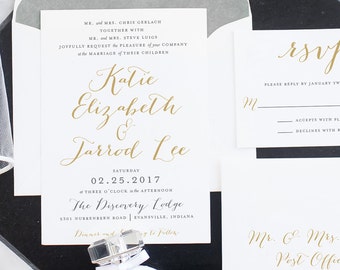 MR. AND MRS. CHRIS GERLACH
TOGETHER WITH
MR. AND MRS. STEVE LUIGS
JOYFULLY REQUEST THE PLEASURE OF YOUR COMPANY
AT THE MARRIAGE OF THEIR CHILDREN
Katie
Elizabeth
&
Jarrod Lee
SATURDAY
02.25.2017
AT THREE O'CLOCK IN THE AFTERNOON
The Discovery Lodge
5301 DURRENBERN ROAD | EVANSVILLE, INDIANA
Dinner and
to Follow
rsvp
PLEASE REPLY BY JANUARY
M
ACCEPTS
DECLINES
Mr. & Mrs.
Post Offic